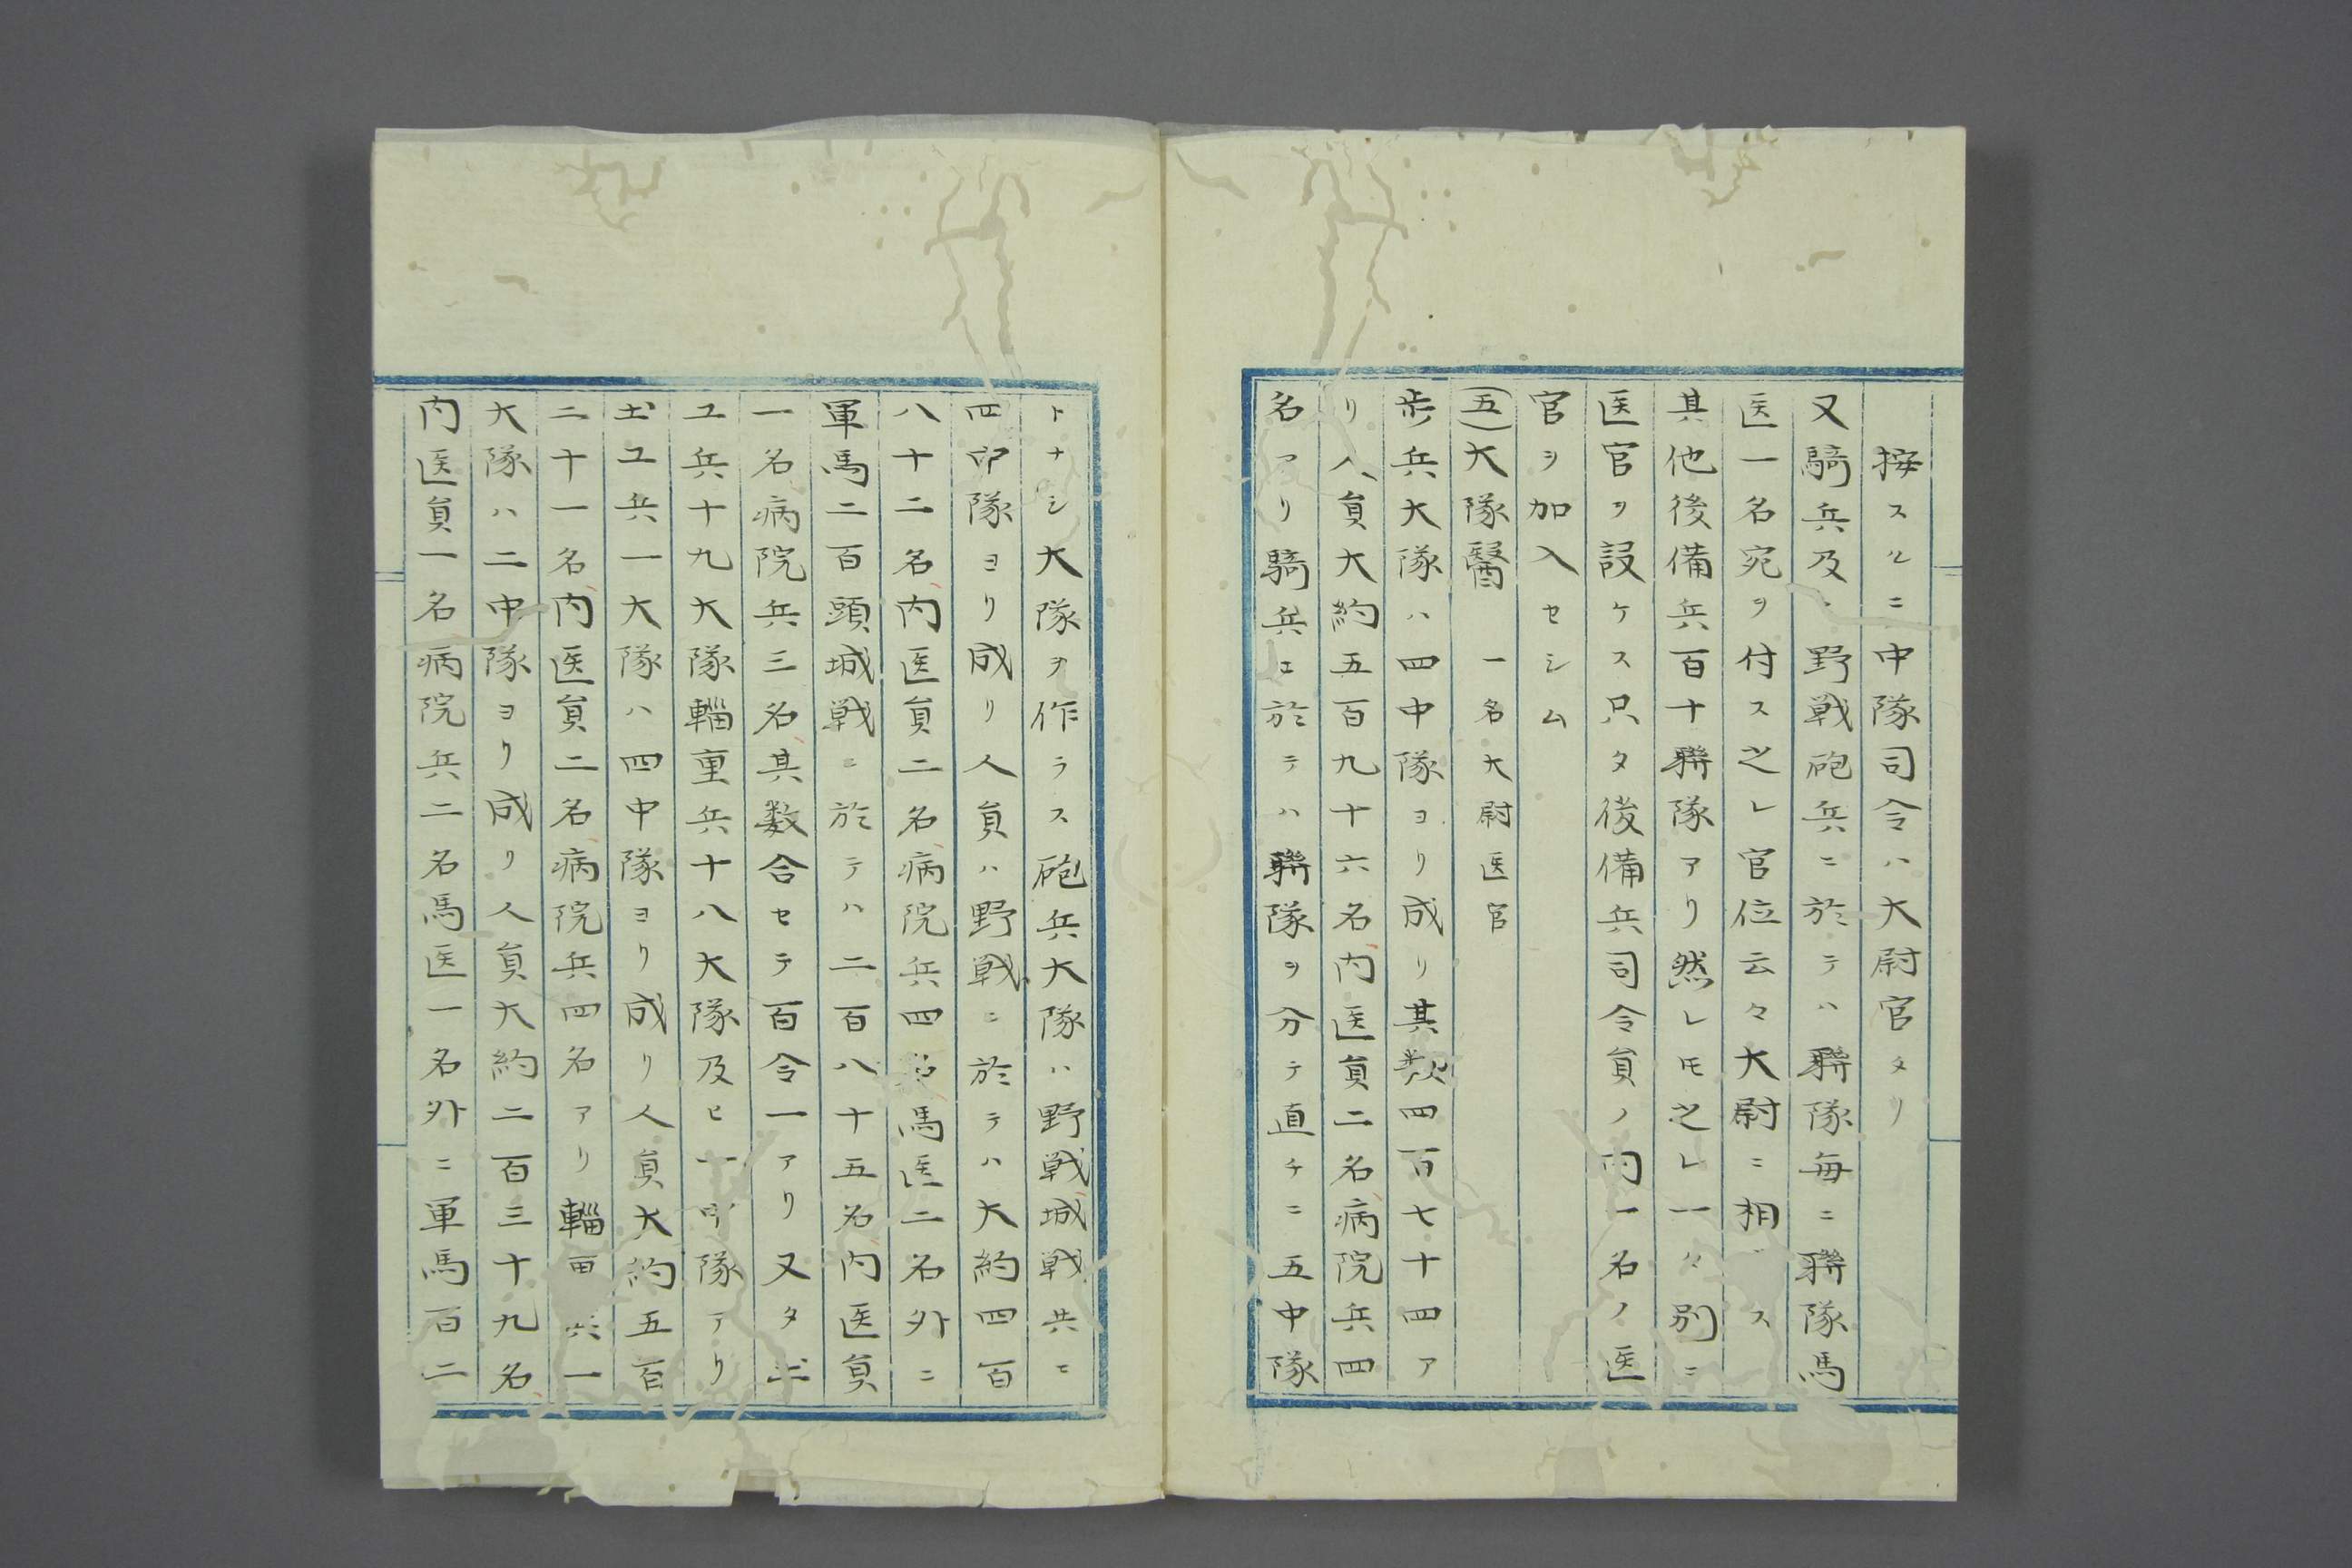 按スルニ中隊司令ハ大尉官タリ
又騎兵及野戦砲兵ニ於テハ聯隊毎ニ聯隊馬
医一名宛ヲ付ス之レ官位云々大尉ニ相ス
其他後備兵百十聯隊アリ然レモ之レ一々別ニ
医官ヲ設ケス只タ後備兵司令員ノ内一名ノ医
官ヲ加入セシム
(五)大隊醫 一名大尉医官
歩兵大隊ハ四中隊ヨリ成リ其数四百七十四ア
リ人員大約五百九十六名内医員二名病院兵四
名アリ騎兵エ於テハ聯隊ヲ分テ直チニ五中隊
トナシ大隊ヲ作ラス砲兵大隊ハ野戦城戦共ニ
四中隊ヨリ成リ人員ハ野戦ニ於テハ大約四百
八十二名内医員二名病院兵四名馬医二名外ニ
軍馬二百頭城戦ニ於テハ二百八十五名内医員
一名病院兵三名其数合セテ百令一アリ又タ
工兵十九大隊輜重兵十八大隊及ヒ一中隊アリ
土工兵一大隊ハ四中隊ヨリ成リ人員大約五百
二十一名内医員二名病院兵四名アリ輜重兵一
大隊ハ二中隊ヨリ成リ人員大約二百三十九名
内医員一名病院兵二名馬医一名外ニ軍馬百二